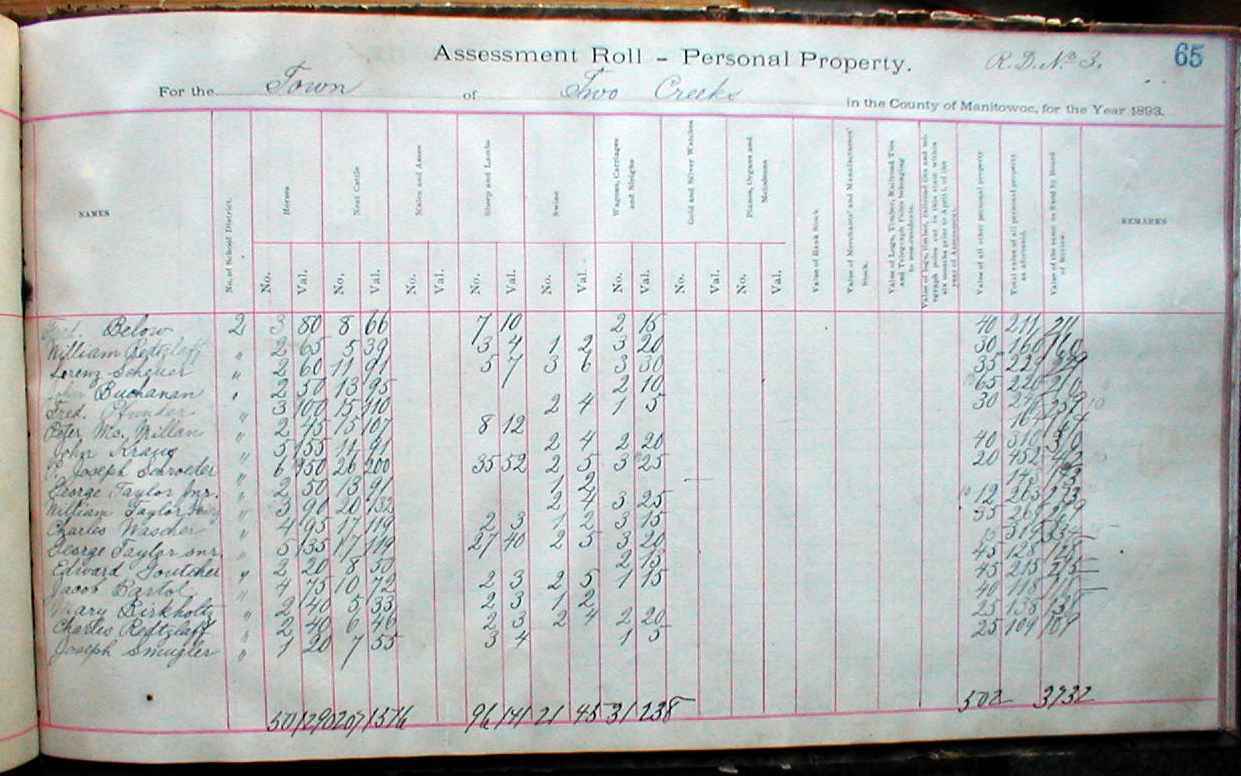 65
Assessment Roll – Personal Property. R.D. No 3.
For the Town of Two Creeks in the County of Manitowoc, for the Year 1893.
NAMES No. of School District. Horses Neat Cattle Mules and Asses Sheep and Lambs Swine Wagons, Carriages and Sleighs Gold and Silver Watches Pianos, Organs and Melodeons Value of Bank Stock Value of Merchants' and Manufacturers' Stock. Value of Logs, Timber, Railroad Ties and Telegraph Poles belonging to non-residents. Value of all other personal property Total value of all personal property as aforesaid. Value of the same as fixed by Board of Review. REMARKS
No. Val. No. Val. No. Val. No. Val. No. Val. No. Val. No. Val. No. Val.
Below 2 3 80 8 66 7 10 2 15 40 211 211
William Redtzlaff " 2 65 5 39 3 4 1 2 3 20 30 160 160
Lorenz " 2 60 11 91 5 7 3 6 3 30 35 229
John Buchanan " 2 50 13 95 2 10 65 220
Fred. " 3 100 15 110 2 4 1 5 30
Peter Mc. Millan " 2 45 15 107 8 12
John " 5 155 14 91 2 4 2 20 40 310
Joseph Schroeder " 6 150 26 200 35 52 2 5 3 25 20 452
George Taylor Jnr. " 2 50 13 91 1 2
William Taylor " 3 90 20 132 2 4 3 25 12 263
Charles Wascher " 4 95 17 119 2 3 1 2 3 15 35
George Taylor snr. " 5 135 17 119 27 40 2 5 3 20
Edward Goutcher " 2 20 8 50 2 13 45 128
Jacob Bartol " 4 75 10 72 2 3 2 5 1 15 45 215 215
Mary Birkholtz " 2 40 5 33 2 3 1 2 40 118
Charles Redtzlaff " 2 40 6 46 2 3 2 4 2 20 25 138 138
Joseph Smugler " 1 20 7 55 3 4 1 5 25 109 109
50 1290 207 1576 96 141 21 45 31 238 502 3732